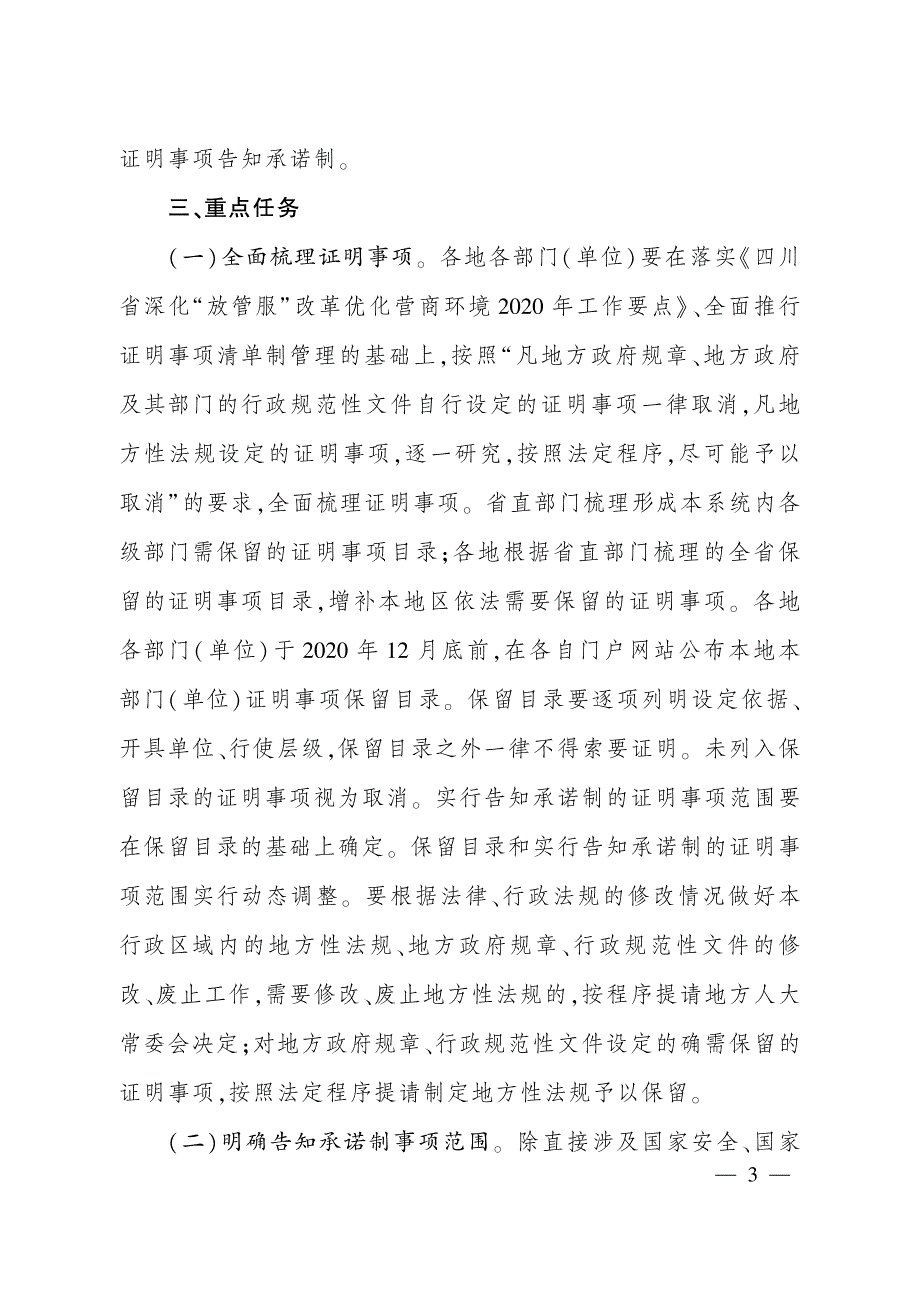 证明事项告知承诺制。
三、重点任务
(一)全面梳理证明事项。各地各部门(单位)要在落实《四川
省深化“放管服”改革优化营商环境 2020 年工作要点》、全面推行
证明事项清单制管理的基础上,按照“凡地方政府规章、地方政府
及其部门的行政规范性文件自行设定的证明事项一律取消,凡地
方性法规设定的证明事项,逐一研究,按照法定程序,尽可能予以
取消”的要求,全面梳理证明事项。省直部门梳理形成本系统内各
级部门需保留的证明事项目录;各地根据省直部门梳理的全省保
留的证明事项目录,增补本地区依法需要保留的证明事项。各地
各部门(单位)于 2020 年 12 月底前,在各自门户网站公布本地本
部门(单位)证明事项保留目录。保留目录要逐项列明设定依据、
开具单位、行使层级,保留目录之外一律不得索要证明。未列入保
留目录的证明事项视为取消。实行告知承诺制的证明事项范围要
在保留目录的基础上确定。保留目录和实行告知承诺制的证明事
项范围实行动态调整。要根据法律、行政法规的修改情况做好本
行政区域内的地方性法规、地方政府规章、行政规范性文件的修
改、废止工作,需要修改、废止地方性法规的,按程序提请地方人大
常委会决定;对地方政府规章、行政规范性文件设定的确需保留的
证明事项,按照法定程序提请制定地方性法规予以保留。
(二)明确告知承诺制事项范围。除直接涉及国家安全、国家
— 3 —